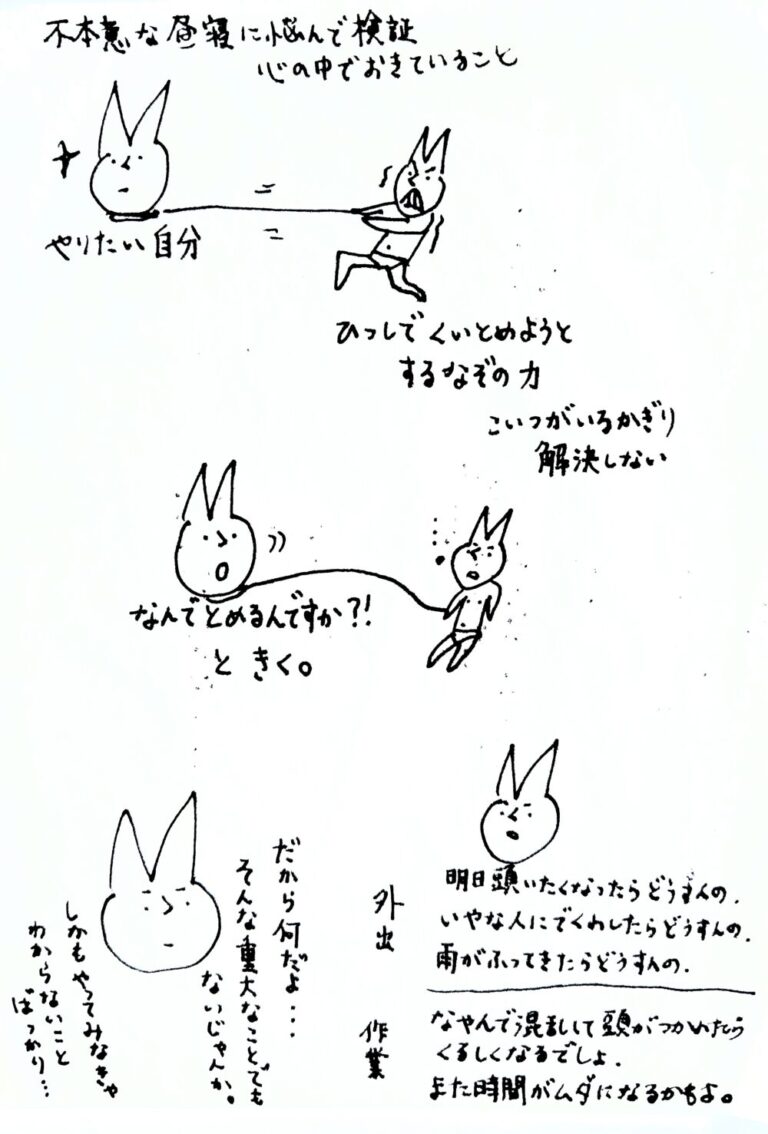 不本意な昼寝に悩んで検証
心の中でおきていること
やりたい自分
ひっしでくいとめようと
するなぞの力
こいつがいるかぎり
解決しない
なんでとめるんですか?!
ときく。
外出
明日頭いたくなったらどうすんの.
いやな人にでくわしたらどうすんの.
雨がふってきたらどうすんの.
作業
なやんで混乱して頭がつかれたら
くるしくなるでしょ.
また時間がムダになるかもよ。
だから何だよ...
そんな重大なことでも
ないじゃんか。
しかもやってみなきゃ
わからないこと
ばっかり...